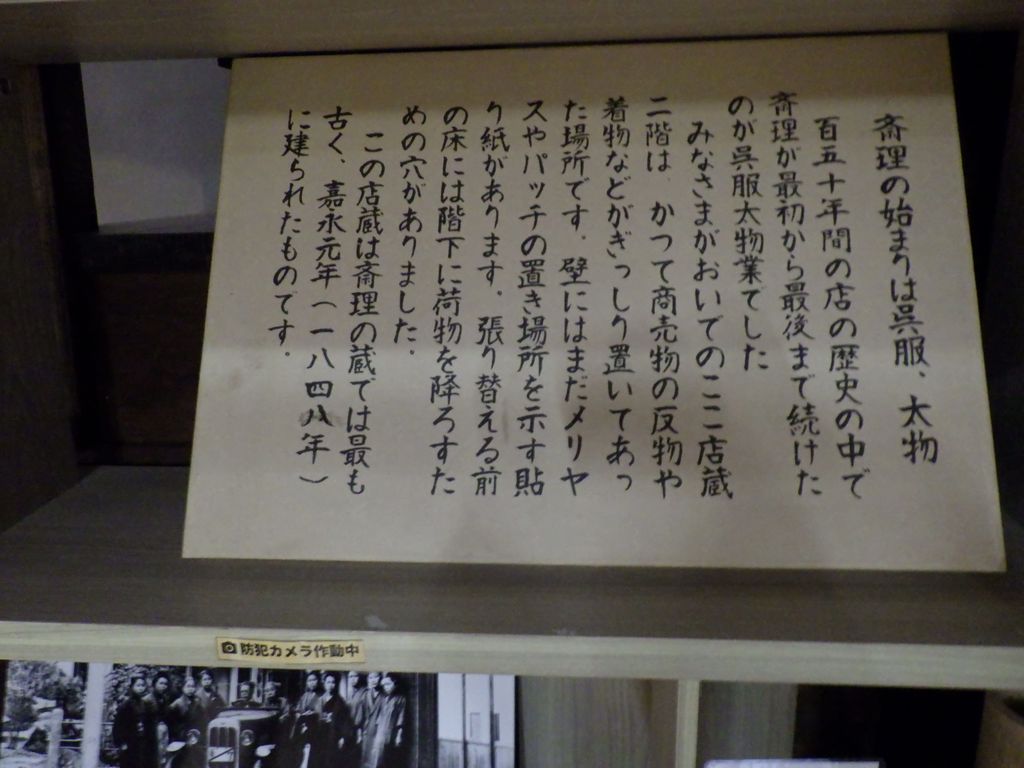 斎理の始まりは呉服、太物
百五十年間の店の歴史の中で
斎理が最初から最後まで続けた
のが呉服太物業でした
みなさまがおいでのここ店蔵
二階は、かつて商売物の反物や
着物などがぎっしり置いてあっ
た場所です。壁にはまだメリヤ
スやパッチの置き場所を示す貼
り紙があります。張り替える前
の床には階下に荷物を降ろすた
めの穴がありました。
この店蔵は斎理の蔵では最も
古く、嘉永元年(一八四八年)
に建られたものです。
防犯カメラ作動中